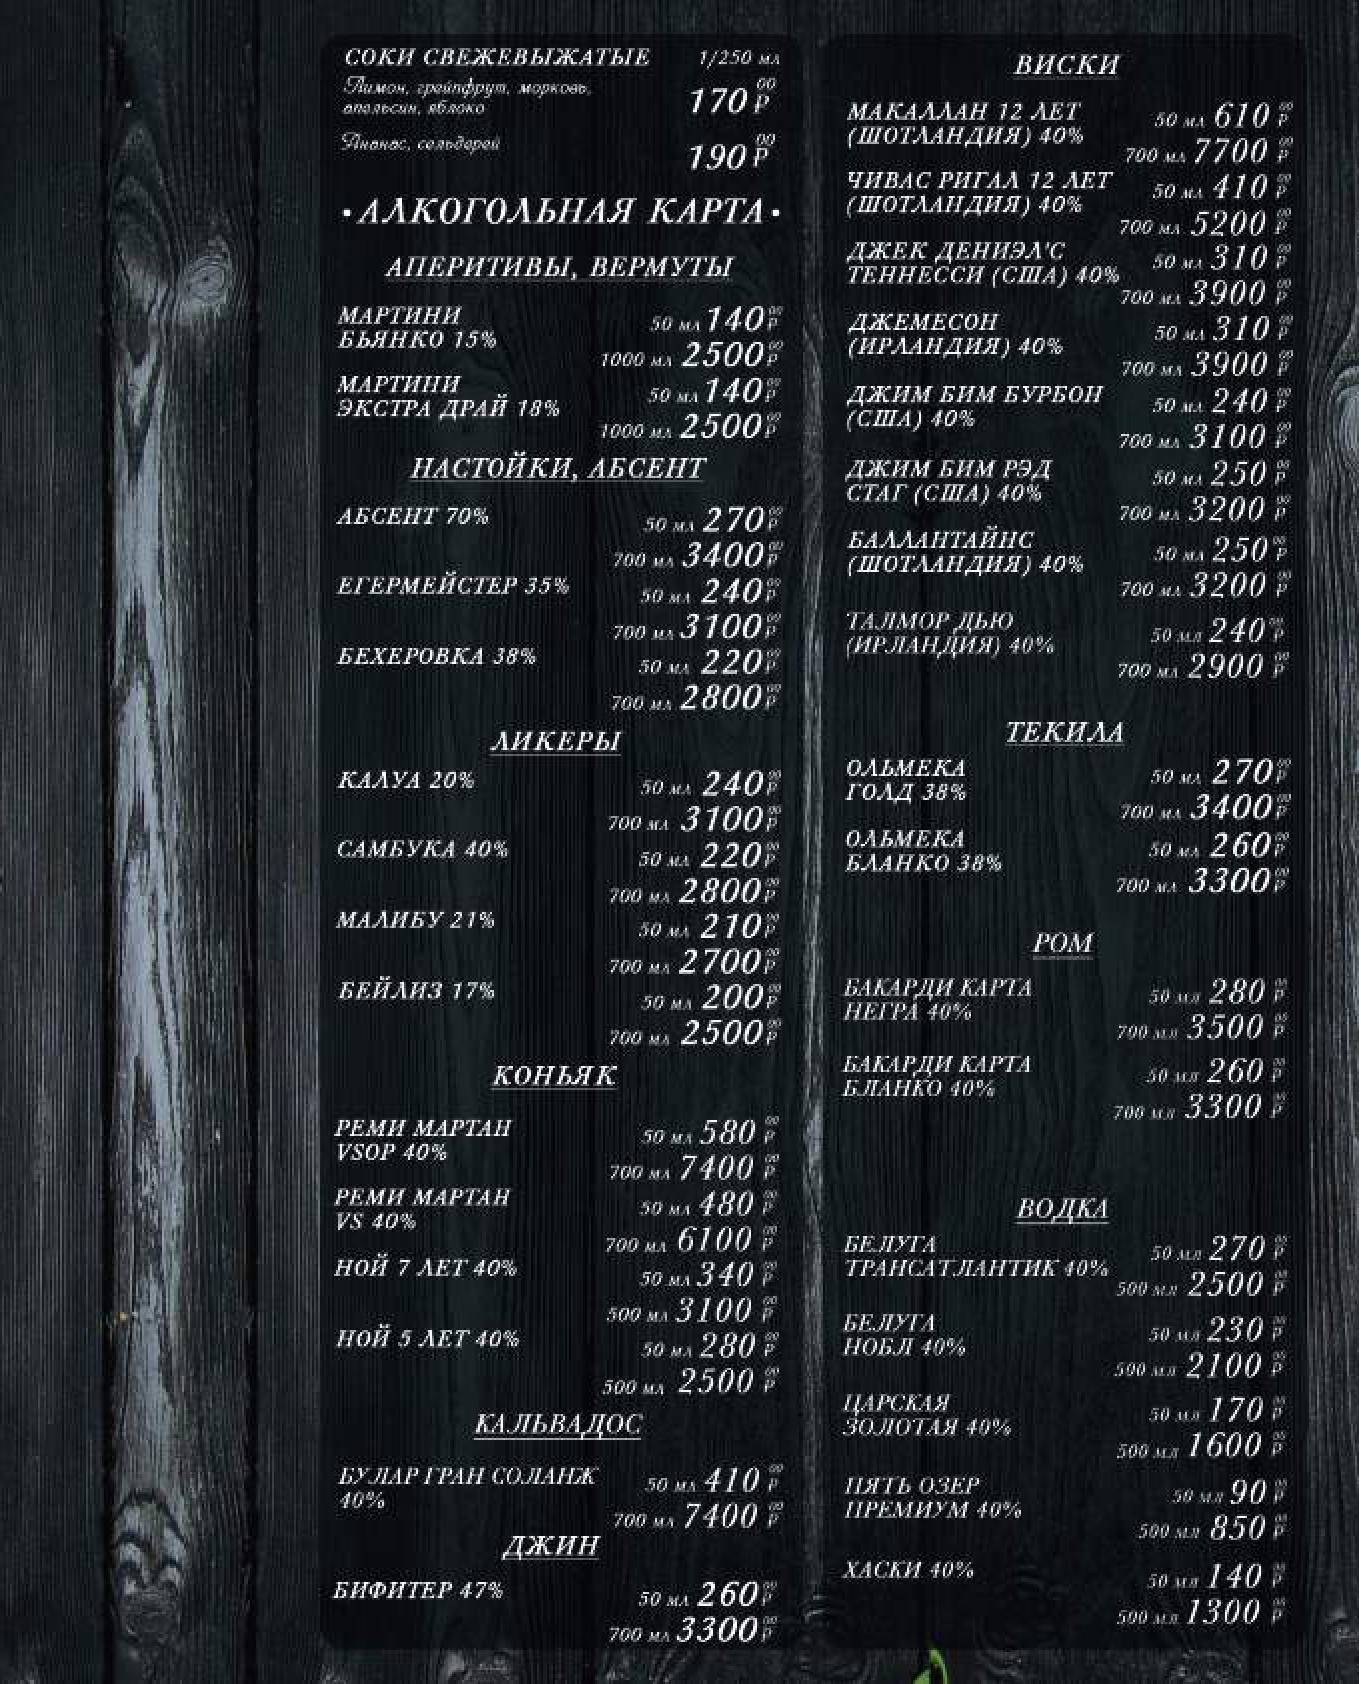 СОКИ СВЕЖЕВЫЖАТЫЕ 1/250 мл
Лимон, грейпфрут, морковь,
апельсин, яблоко 170 00 Р
Ананас, сельдерей 190 00 Р
•АЛКОГОЛЬНАЯ КАРТА•
АПЕРИТИВЫ, ВЕРМУТЫ
МАРТИНИ 50 мл 140 00 Р
БЬЯНКО 15%
1000 мл 2500 00 Р
МАРТИНИ 50 мл 140 00 Р
ЭКСТРА ДРАЙ 18%
1000 мл 2500 00 Р
НАСТОЙКИ, АБСЕНТ
АБСЕНТ 70% 50 мл 270 00 Р
700 мл 3400 00 Р
ЕГЕРМЕЙСТЕР 35% 50 мл 240 00 Р
700 мл 3100 00 Р
БЕХЕРОВКА 38% 50 мл 220 00 Р
700 мл 2800 00 Р
ЛИКЕРЫ
КАЛУА 20% 50 мл 240 00 Р
700 мл 3100 00 Р
САМБУКА 40% 50 мл 220 00 Р
700 мл 2800 00 Р
МАЛИБУ 21% 50 мл 210 00 Р
700 мл 2700 00 Р
БЕЙЛИЗ 17% 50 мл 200 00 Р
700 мл 2500 00 Р
КОНЬЯК
РЕМИ МАРТАН 50 мл 580 00 Р
VSOP 40%
700 мл 7400 00 Р
РЕМИ МАРТАН 50 мл 480 00 Р
VS 40%
700 мл 6100 00 Р
НОЙ 7 ЛЕТ 40% 50 мл 340 00 Р
500 мл 3100 00 Р
НОЙ 5 ЛЕТ 40% 50 мл 280 00 Р
500 мл 2500 00 Р
КАЛЬВАДОС
БУЛАР ГРАН СОЛАНЖ 50 мл 410 00 Р
40%
700 мл 7400 00 Р
ДЖИН
БИФИТЕР 47% 50 мл 260 00 Р
700 мл 3300 00 Р
ВИСКИ
МАКАЛЛАН 12 ЛЕТ 50 мл 610 00 Р
(ШОТЛАНДИЯ) 40%
700 мл 7700 00 Р
ЧИВАС РИГАЛ 12 ЛЕТ 50 мл 410 00 Р
(ШОТЛАНДИЯ) 40%
700 мл 5200 00 Р
ДЖЕК ДЕНИЭЛ'С 50 мл 310 00 Р
ТЕННЕССИ (США) 40%
700 мл 3900 00 Р
ДЖЕМЕСОН 50 мл 310 00 Р
(ИРЛАНДИЯ) 40%
700 мл 3900 00 Р
ДЖИМ БИМ БУРБОН 50 мл 240 00 Р
(США) 40%
700 мл 3100 00 Р
ДЖИМ БИМ РЭД 50 мл 250 00 Р
СТАГ (США) 40%
700 мл 3200 00 Р
БАЛЛАНТАЙНС 50 мл 250 00 Р
(ШОТЛАНДИЯ) 40%
700 мл 3200 00 Р
ТАЛМОР ДЬЮ 50 мл 240 00 Р
(ИРЛАНДИЯ) 40%
700 мл 2900 00 Р
ТЕКИЛА
ОЛЬМЕКА 50 мл 270 00 Р
ГОЛД 38%
700 мл 3400 00 Р
ОЛЬМЕКА 50 мл 260 00 Р
БЛАНКО 38%
700 мл 3300 00 Р
РОМ
БАКАРДИ КАРТА 50 мл 280 00 Р
НЕГРА 40%
700 мл 3500 00 Р
БАКАРДИ КАРТА 50 мл 260 00 Р
БЛАНКО 40%
700 мл 3300 00 Р
ВОДКА
БЕЛУГА 50 мл 270 00 Р
ТРАНСАТЛАНТИК 40%
500 мл 2500 00 Р
БЕЛУГА 50 мл 230 00 Р
НОБЛ 40%
500 мл 2100 00 Р
ЦАРСКАЯ 50 мл 170 00 Р
ЗОЛОТАЯ 40%
500 мл 1600 00 Р
ПЯТЬ ОЗЕР 50 мл 90 00 Р
ПРЕМИУМ 40%
500 мл 850 00 Р
ХАСКИ 40% 50 мл 140 00 Р
500 мл 1300 00 Р